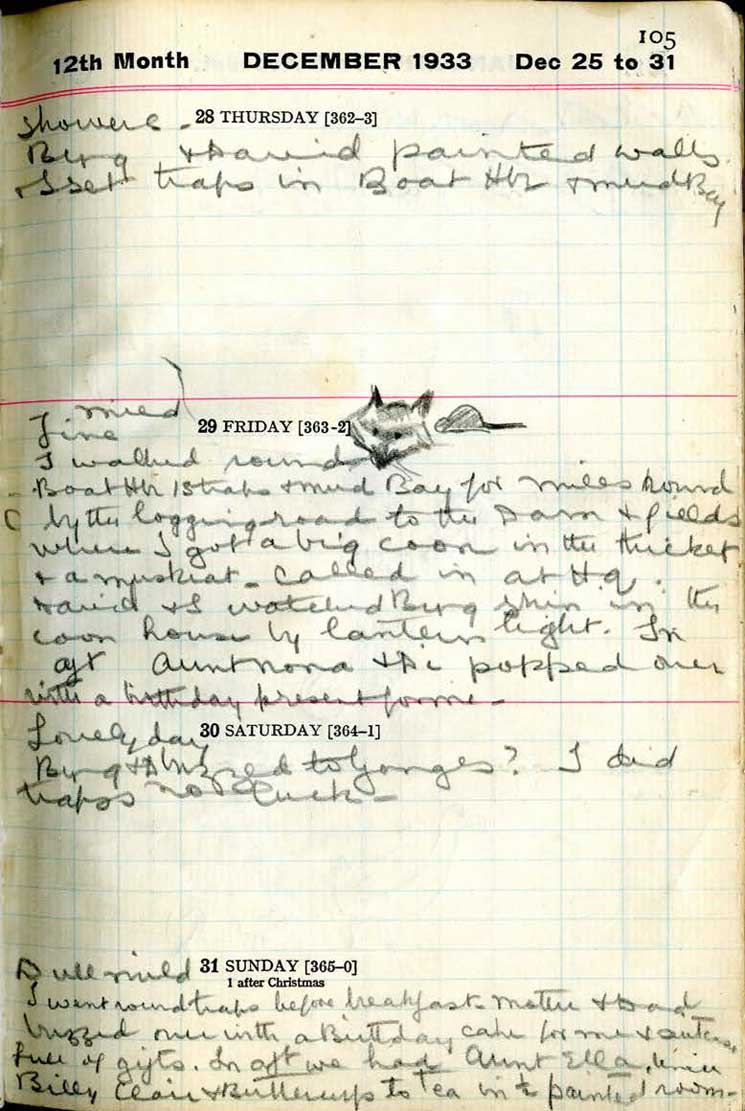 105
12th Month DECEMBER 1933 Dec 25 to 31
showers - 28 THURSDAY [362–3]
& David painted walls.
I set traps in Boat Hbr & mud Bay
mild
Fine 29 FRIDAY [363-2]
I walked round
Boat Hbr traps & Mud Bay for miles round
by the logging road to the & fields
where I got a big coon in the thicket
& a muskrat - called in at Hq.
David & I watched skin in the
coon house by lantern light. In
aft Aunt Nona & Di popped over
with a birthday present for me -
Lovely day 30 SATURDAY [364–1]
to Ganges? I did
traps no luck -
Dull mild 31 SUNDAY [365–0]
1 after Christmas
I went round traps before breakfast. Mother & Dad
buzzed over with a Birthday cake for me &
full of gifts. In aft we had Aunt Ella,
Billy Clair & Buttercup to tea in ½ painted room -